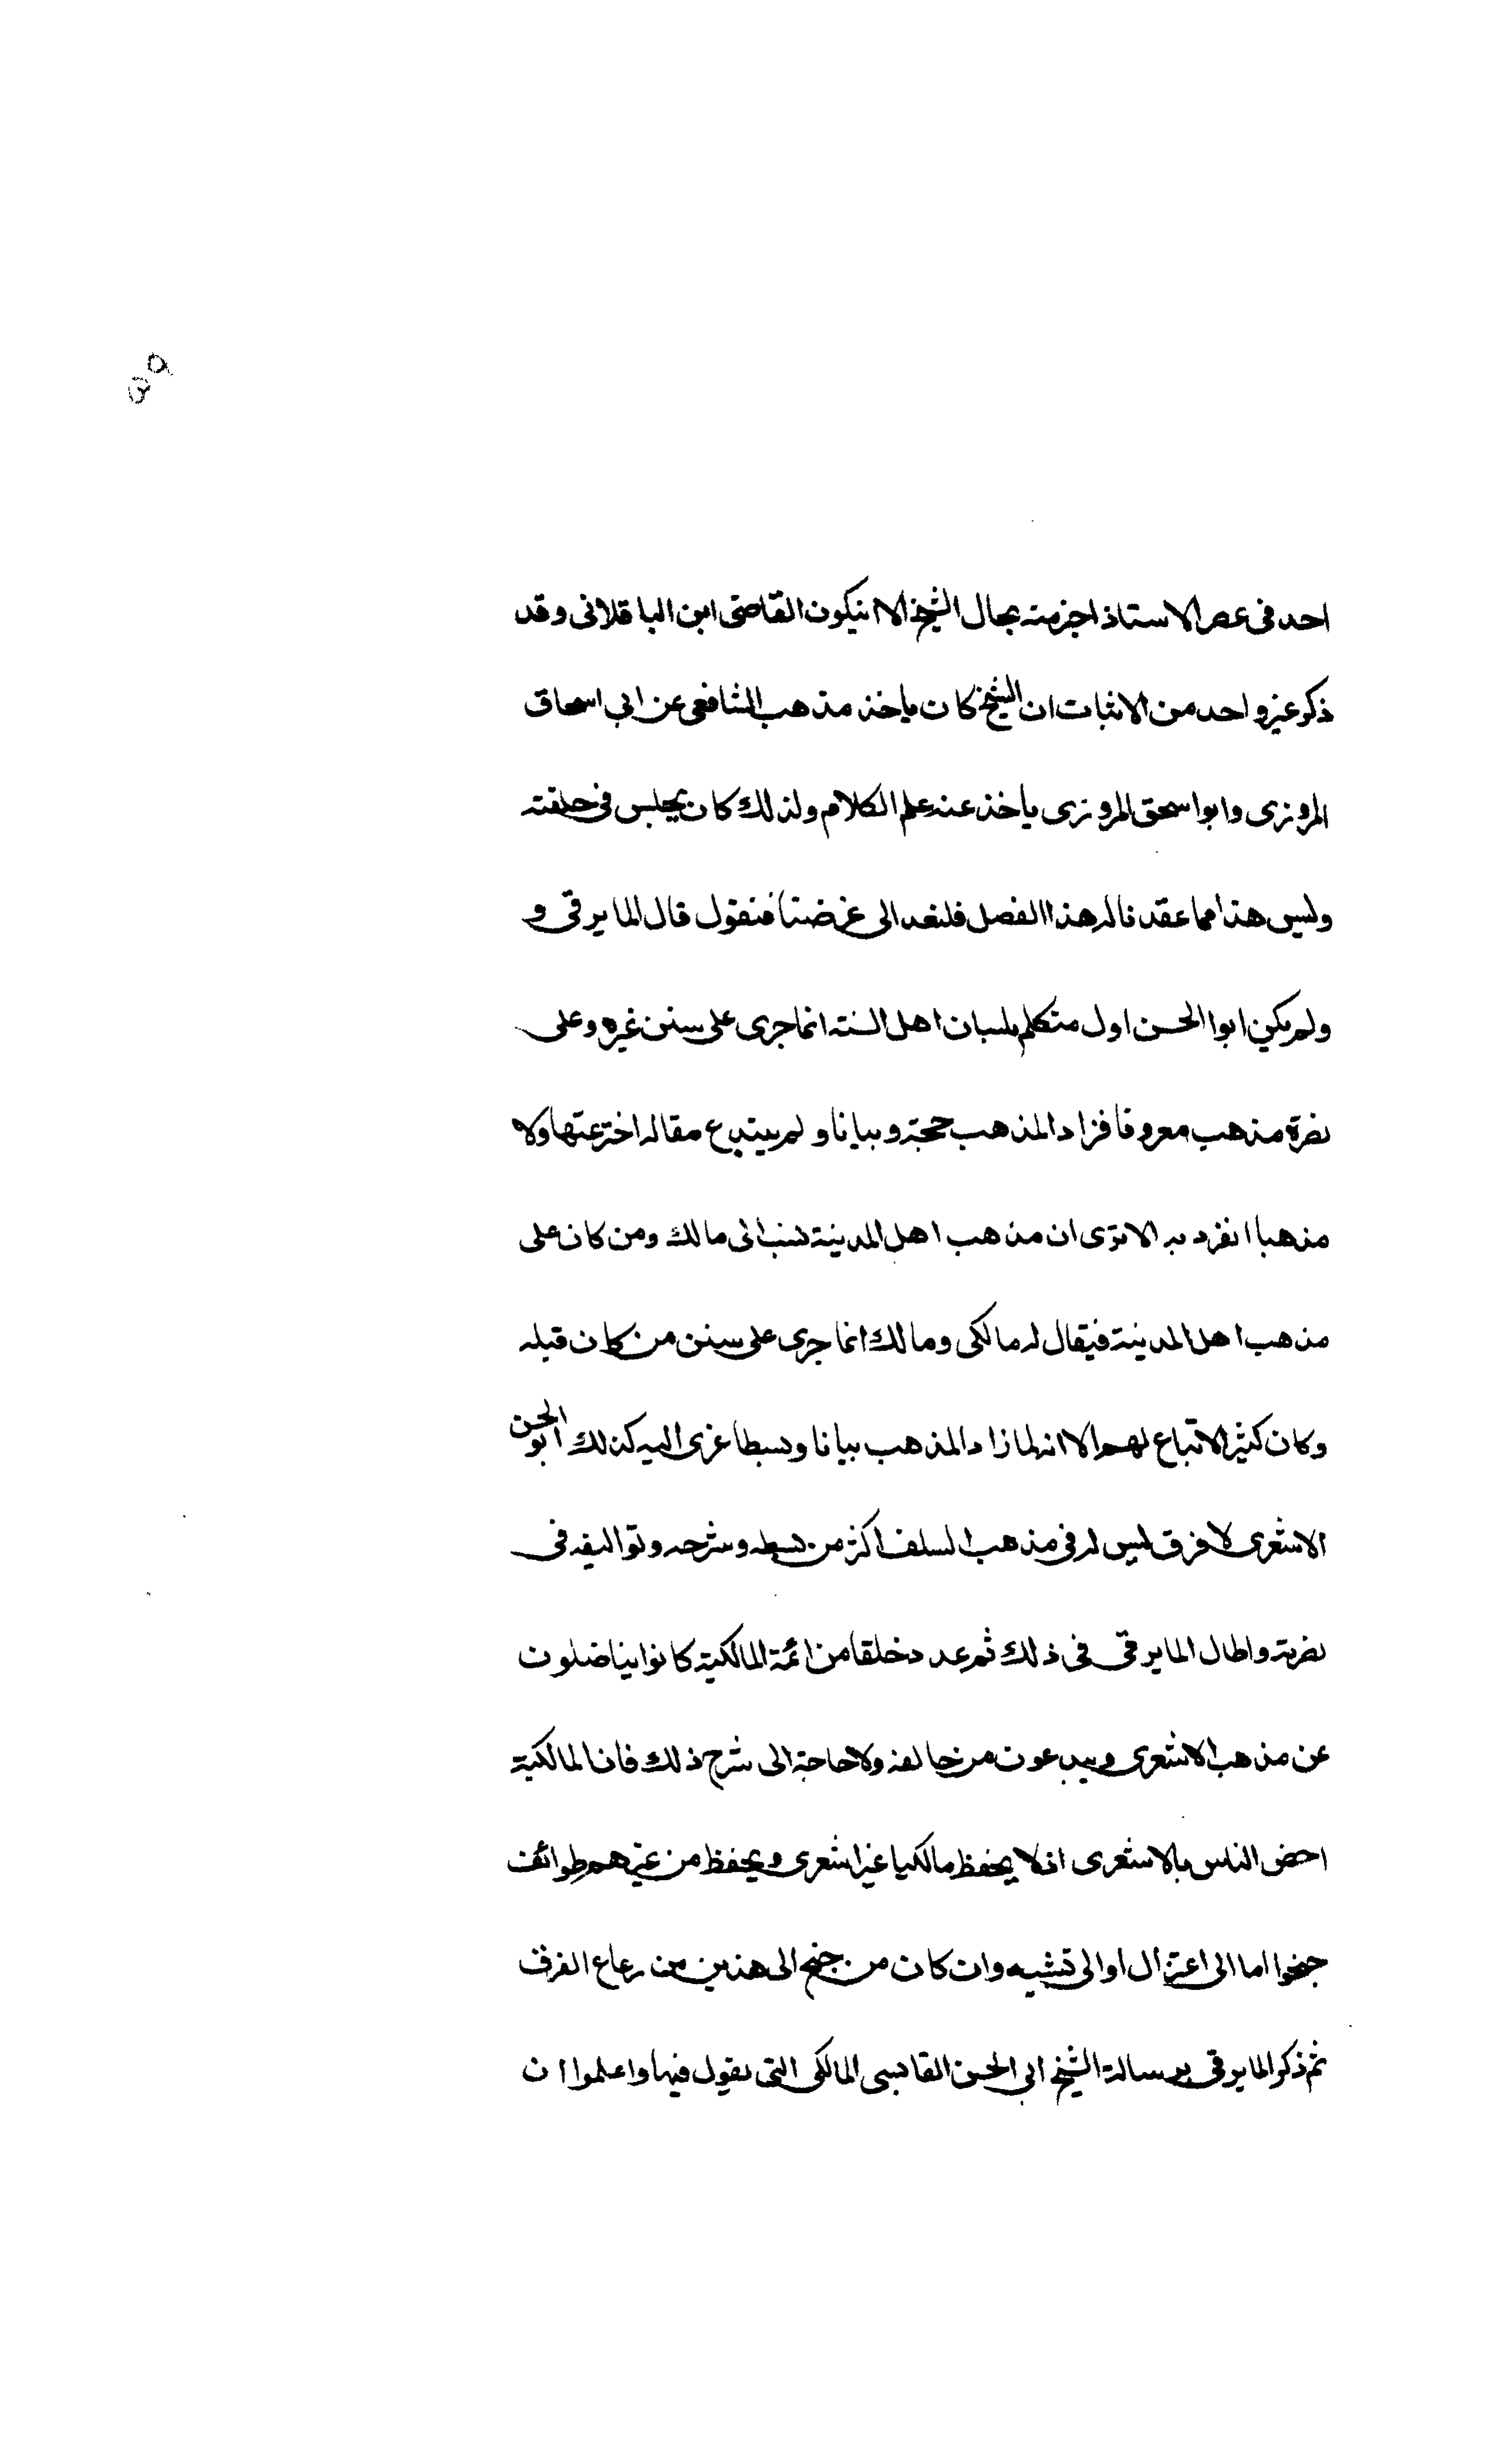 احد فى عصر الاستاذ اجزمته بحال الشيخ الا انيكون القاضى ابن الباقلانى وقد
ذكر غير واحد من الاثبات ان الشيخ كان ياخذ مذهب الشافعى عن ابى اسحاق
المروزى وابو اسحق المروزى ياخذ عنه علم الكلام ولذلك كان يجلس فى حلقته
وليس هذا مما عقد ناله هذا الفصل فلنعد الى غرضنا فنقول قال المايرقى و
ولم يكن ابوا الحسن اول متكلم بلسان اهل السنة انما جرى على سنن غيره وعلى
نصرة مذهب معروفا فزاد المذهب حجة وبيانا ولم يبتدع مقاله اخترعتها ولا
مذهبا انفرد به الا ترى ان مذهب اهل المدينة نسب الى مالك ومن كان على
مذهب اهل المدينة فيقال له مالكى ومالك انما جرى على سنن من كان قبله
وكان كثير الاتباع لهم الا انه لما زاد المذهب بيانا وبسطا عزى اليه كذلك ابو الحسن
الاشعرى لا فرق ليس له فى مذهب السلف اكثر من بسطه وشرحه وتواليفه فى
نصرته واطال المايرقى فى ذلك ثم عدد خلقا من ائمة المالكية كانوا يناضلون
عن مذهب الاشعرى ويبدعون من خالفه ولا حاجة الى شرح ذلك فان المالكية
اخص الناس بالاشعرى اذ لا يحفظ مالكيا غير اشعرى ويحفظ من غيرهم طوائف
جنحوا اما الى اعتزال او الى تشبيه وان كان من جنح الى هذين من رعاع الفرق
ثم ذكر المايرقى برسالة الشيخ ابى الحسن القابسى المالكى التى يقول فيها واعلموا ان